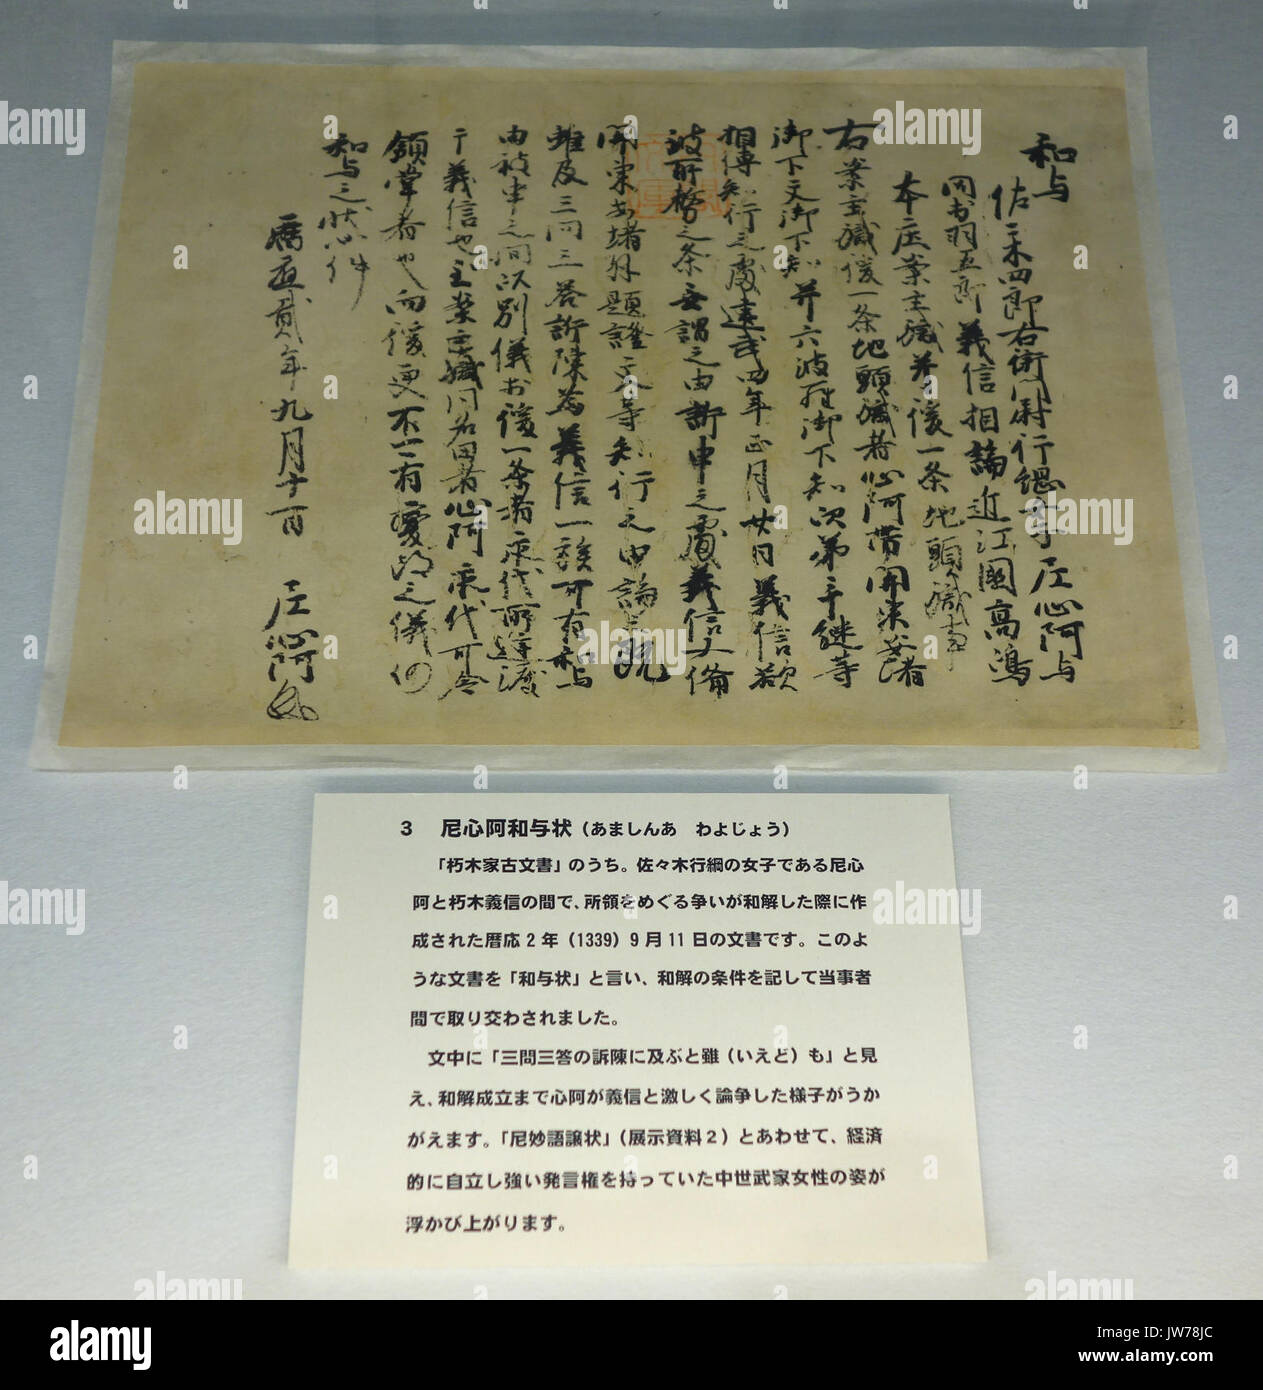 和与
佐々木四郎右衛門尉行綱女子尼心阿与
同出羽五郎義信相論近江国高嶋
本庄案主職并後一条地頭職事
右案主職後一条地頭職者心阿帯関東安堵
御下文御下知并六波羅御下知次第手継等
相伝知行之処建武四年正月廿日義信致
押妨之条無謂之由訴申之処義信又備
関東安堵外題證文等知行之由論之既
雖及三問三答訴陳為義信一族可有和与
由被申之間以別儀於後一条者永代所避渡
于義信也至案主職同名田者心阿永代可令
領掌者也向後更不可有変改之儀仍
和与之状如件
暦応貳年九月十一日 尼心阿
3 尼心阿和与状（あましんあ わよじょう）
「朽木家古文書」のうち。佐々木行綱の女子である尼心
阿と朽木義信の間で、所領をめぐる争いが和解した際に作
成された暦応２年（1339）９月11日の文書です。このよ
うな文書を「和与状」と言い、和解の条件を記して当事者
間で取り交わされました。
文中に「三問三答の訴陳に及ぶと雖（いえど）も」と見
え、和解成立まで心阿が義信と激しく論争した様子がうか
がえます。「尼妙語譲状」（展示資料２）とあわせて、経済
的に自立し強い発言権を持っていた中世武家女性の姿が
浮かび上がります。
alamy
Image ID: JW78JC
www.alamy.com